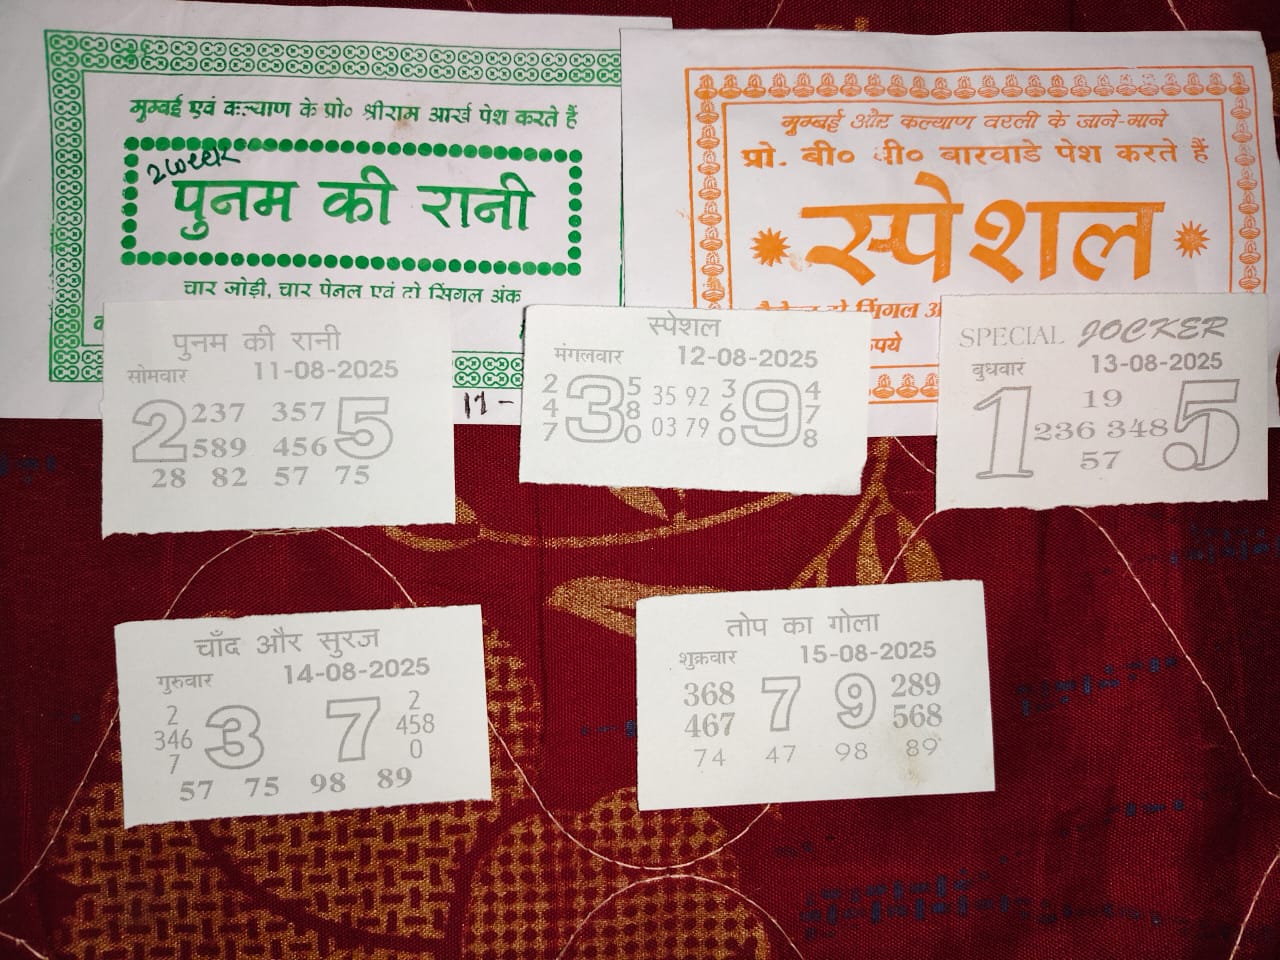 मुम्बई एवं कल्याण के प्रो० श्रीराम आर्ख पेश करते हैं
2 week
पुनम की रानी
चार जोड़ी, चार पेनल एवं दो सिंगल अंक
11 -
मुम्बई और कल्याण वरली के जाने-माने
प्रो. बी० पी० बारवाडे पेश करते हैं
स्पेशल
सिंगल
पुनम की रानी
सोमवार 11-08-2025
2 237 357 5
589 456
28 82 57 75
स्पेशल
मंगलवार 12-08-2025
2 5 35 92 3 4
4 3 8 6 9 7
7 0 03 79 0 8
SPECIAL JOCKER
बुधवार 13-08-2025
19
1 236 348 5
57
चाँद और सुरज
गुरुवार 14-08-2025
2 2
346 3 7 458
7 0
57 75 98 89
तोप का गोला
शुक्रवार 15-08-2025
368 7 9 289
467 568
74 47 98 89